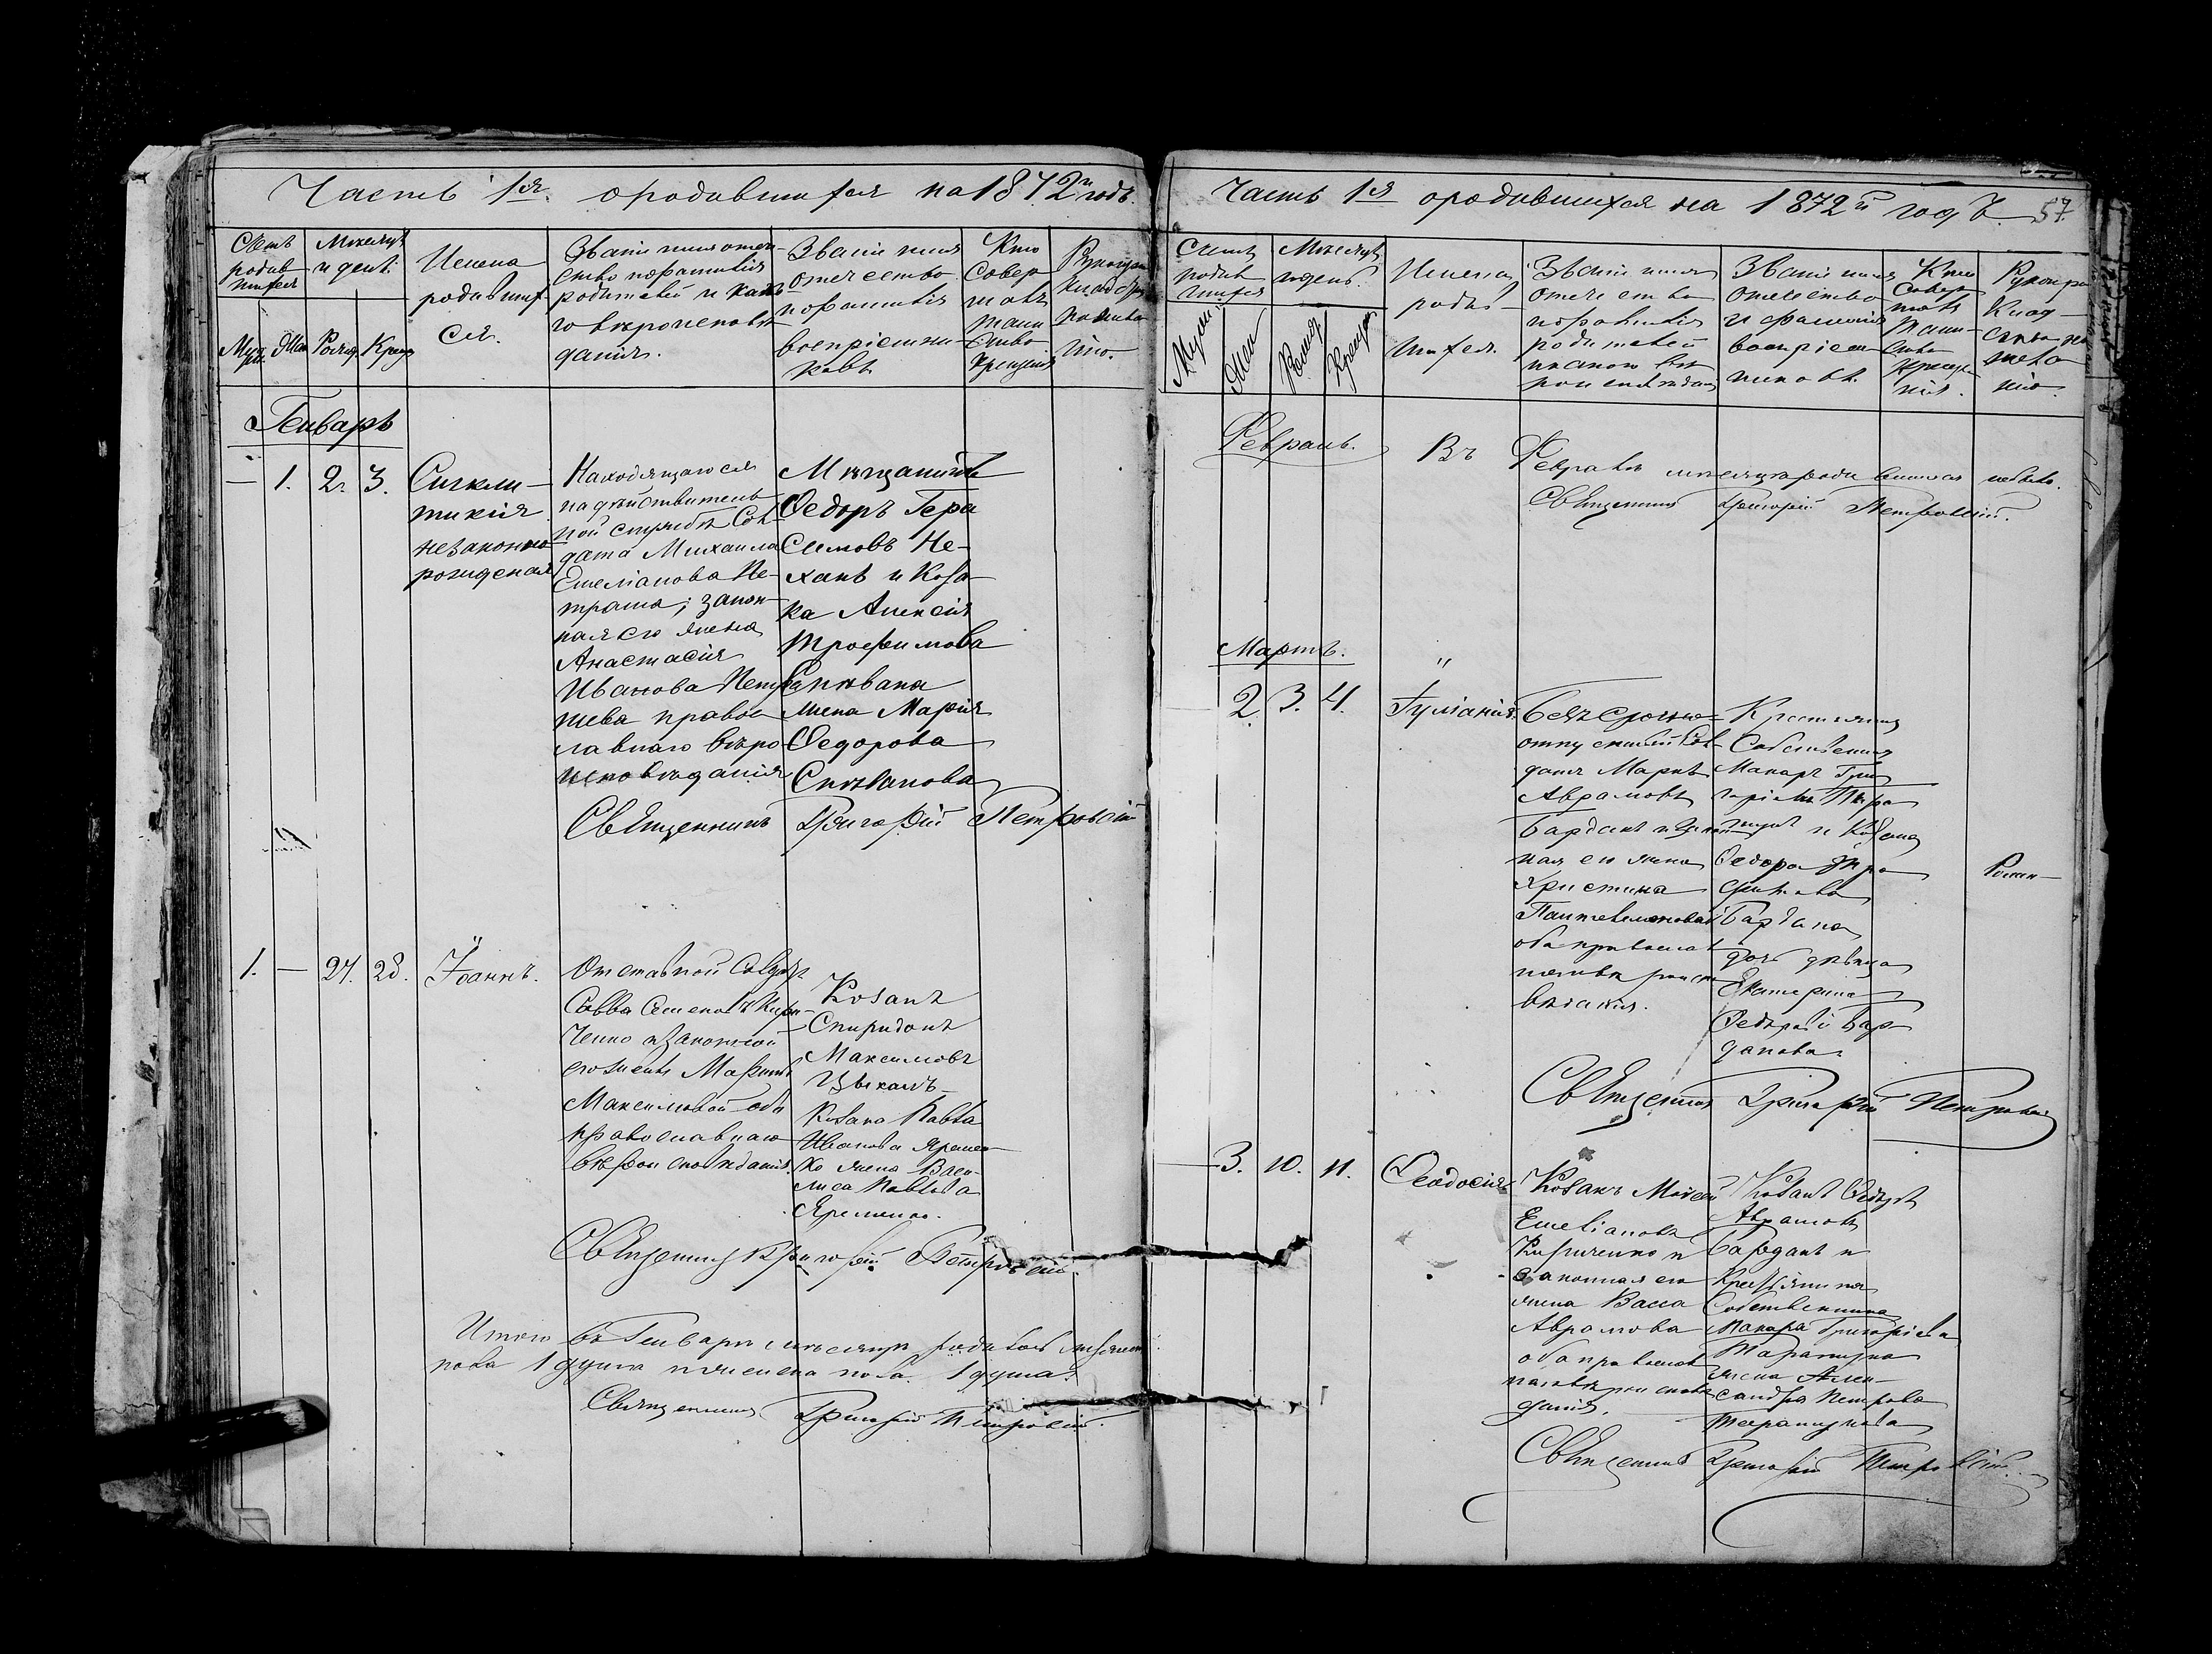 Часть 1я. о родившихся на 1872й годъ.
Счетъ родив шихся
Месяцъ и день.
Муж. Жен. Рожд. Крещ.
Имена родившихся.
Званіе имя отече-
ство и фамилія
родителей и како
го вѣроисповѣ
данія.
Званіе имя
отчество
и фамилія
воспріемни-
ковъ
Кто
Совер
шалъ
таин
ство
Крещенія
Генварь
— 1. 2. 3.
Сигкли-
тикія
незаконно
рожденая
Находящагося
на дѣйствитель-
ной службѣ Сол-
дата Михаила
Емеліанова Пе-
траша; закон-
ная его жена
Анастасія
Иванова
шева правос
лавнаго вѣро
исповѣданія
Мѣщанинъ
Ѳедоръ Гера
Симовъ Че-
ханъ и Коза-
ка Алексія
Трофимова
жена Марія
Ѳедорова
Священникъ Григорій Петровскій
1. — 27. 28.
Іоаннъ.
Отставной Солдатъ
Савва Семеновъ Кири-
ченко и законной
его жены Марины
Максимовой оба
православнаго
вѣроисповѣданія.
Козакъ
Спиридонъ
Максимовъ
Козака Павла
Иванова Яремен-
ко жена Васи-
лиса Павлова
Яременко.
Священникъ Григорій Петровскій.
Итого въ Генварѣ мѣсяцѣ родилось мужеск.
пола 1 душа и женска пола. 1 душа.
Священникъ Григорій Петровскій.
Часть 1я о родившихся на 1872й годъ 57.
Счетъ
родив
шихся
Месяцъ
и день.
Муж. Жен. Рожд. Крещ.
Имена
роди-
вшихся.
Званіе имя
отечество
и фамилія
родителей
и какого вѣ
роисповѣданія
Званіе имя
отечество
и фамилія
воспріем
никовъ.
Кто
Совер
шалъ
Таин-
ство
Креще-
нія.
Февраль.
Въ Февралѣ месяцѣ родившихся небыло.
Священникъ Григорій Петровскій.
Мартъ.
— 2. 3. 4.
Гуліанія.
Безсрочно-
отпускной Сол-
датъ Маркъ
Аврамовъ
Барданъ и закон
ная его жена
Христина
Пантелимоновой
оба православ
наго вѣроиспо
вѣданія.
Крестянинъ
Собственникъ
Макаръ Гри
горіевъ
и Козака
Ѳедора Тро
фимова
Бардана
дочь дѣвица
Екатерина
Ѳедорова Бар-
данова.
Священникъ Григорій Петровскій
— 3. 10. 11.
Ѳеодосія
Козакъ Моисей
Емеліановъ
Кириченко и
законная его
жена Васса
Аврамова
оба православ
наго вѣроисповѣ
данія.
Козакъ Ѳедоръ
Аврамовъ
Барданъ и
Крестьянина
Собственника
Макара Григоріева
жена Алек-
сандра Петрова
Священникъ Григорій Петровскій.